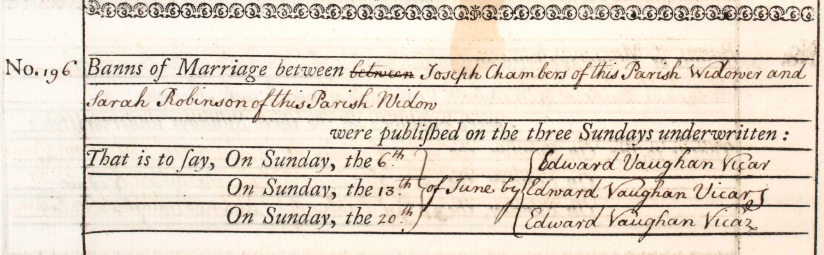 No. 196 Banns of Marriage between ~~between~~ Joseph Chambers of this Parish Widower and
Sarah Robinson of this Parish Widow
were publiſhed on the three Sundays underwritten :
That is to ſay, On Sunday, the 6th Edward Vaughan Vicar
On Sunday, the 13th of June by Edward Vaughan Vicar
On Sunday, the 20th Edward Vaughan Vicar